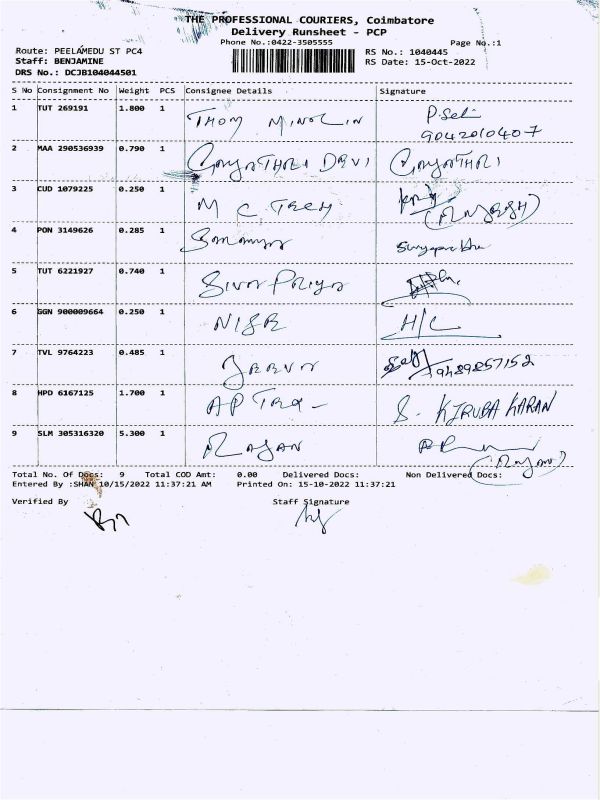 THE PROFESSIONAL COURIERS, Coimbatore
Delivery Runsheet - PCP
Phone No.:0422-3505555 Page No.:1
Route: PEELAMEDU ST PC4 RS No.: 1040445
Staff: BENJAMINE RS Date: 15-Oct-2022
DRS No.: DCJB104044501
S No Consignment No Weight PCS Consignee Details Signature
1 TUT 269191 1.800 1 THOM
9042010407
2 MAA 290536939 0.790 1 GAYATHRI DEVI GAYATHRI
3 CUD 1079225 0.250 1 M C TECH (RAJESH)
4 PON 3149626 0.285 1
5 TUT 6221927 0.740 1 Siva Priya
6 GGN 900009664 0.250 1 H/C
7 TVL 9764223 0.485 1 9489857152
8 HPD 6167125 1.700 1 S. KIRUBA KARAN
9 SLM 305316320 5.300 1 RAJAN
(Rajan)
Total No. Of Docs: 9 Total COD Amt: 0.00 Delivered Docs: Non Delivered Docs:
Entered By :SHAN 10/15/2022 11:37:21 AM Printed On: 15-10-2022 11:37:21
Verified By Staff Signature